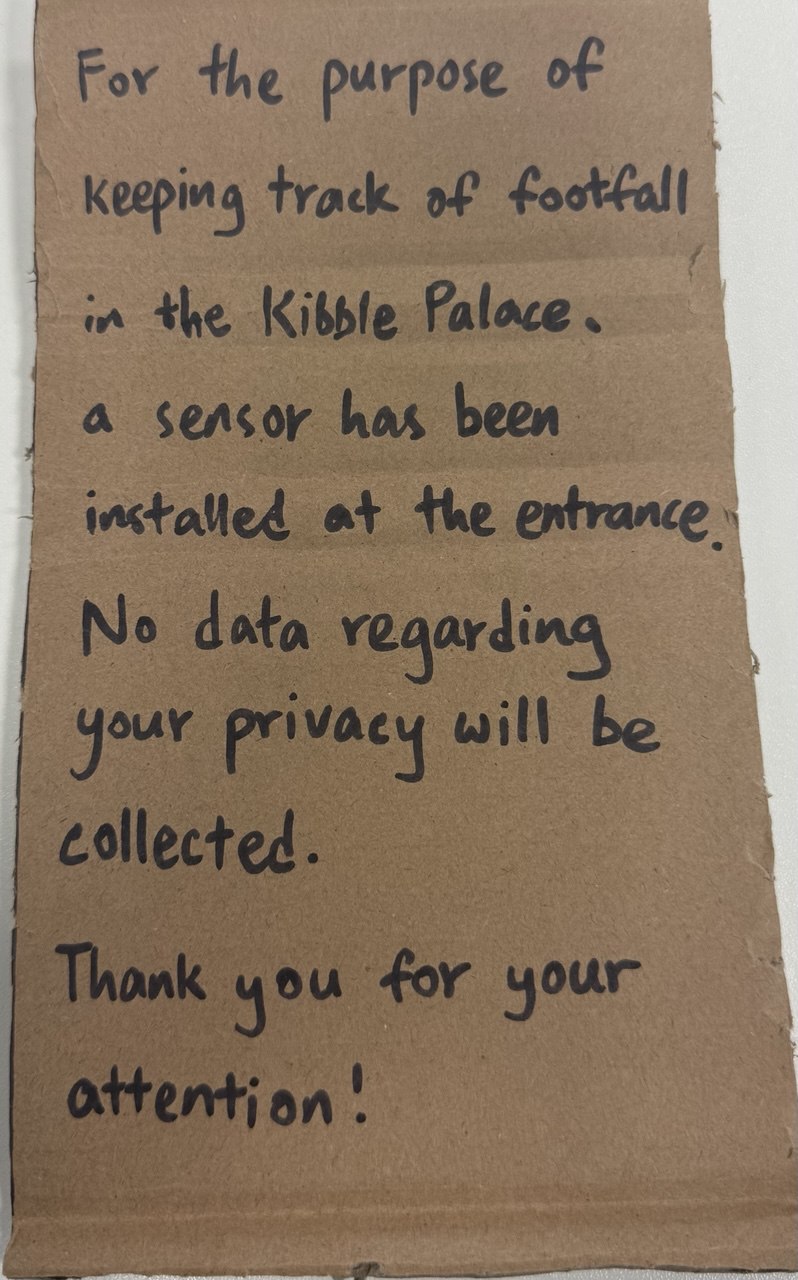 For the purpose of
keeping track of footfall
in the Kibble Palace.
a sensor has been
installed at the entrance.
No data regarding
your privacy will be
collected.
Thank you for your
attention!